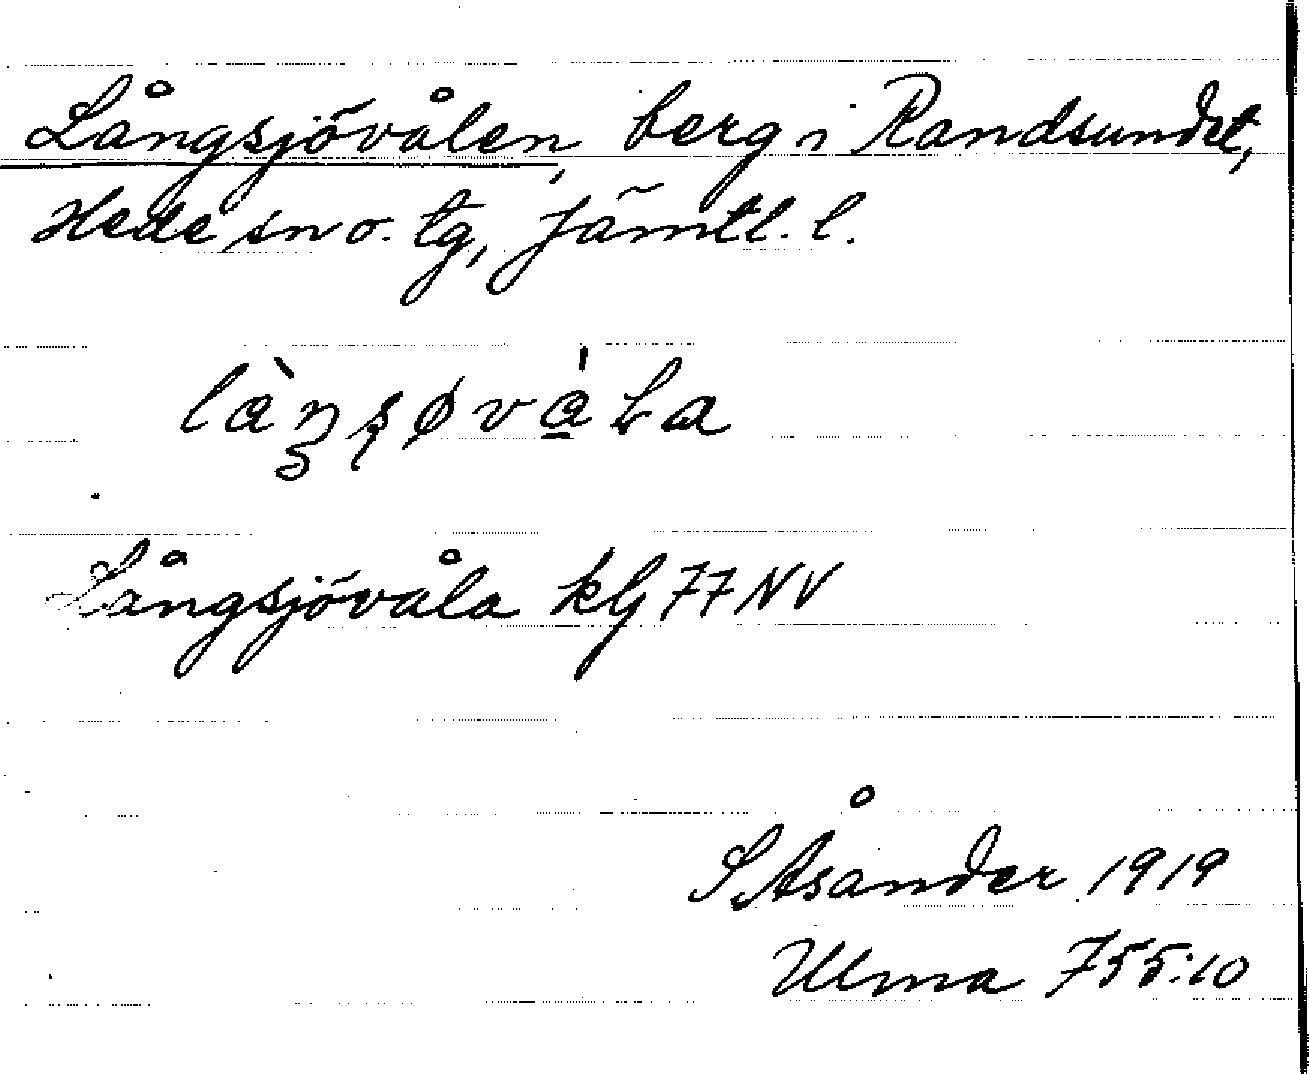 Långsjövålen, berg i Randsundet,
Hede sn o. tg, Jämtl. l.
Långsjövåla kG 77 NV
S. Åsander 1919
Ulma 755:10